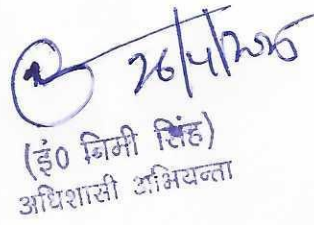 26/4/2025
(इं0 निमी सिंह)
अधिशासी अभियन्ता